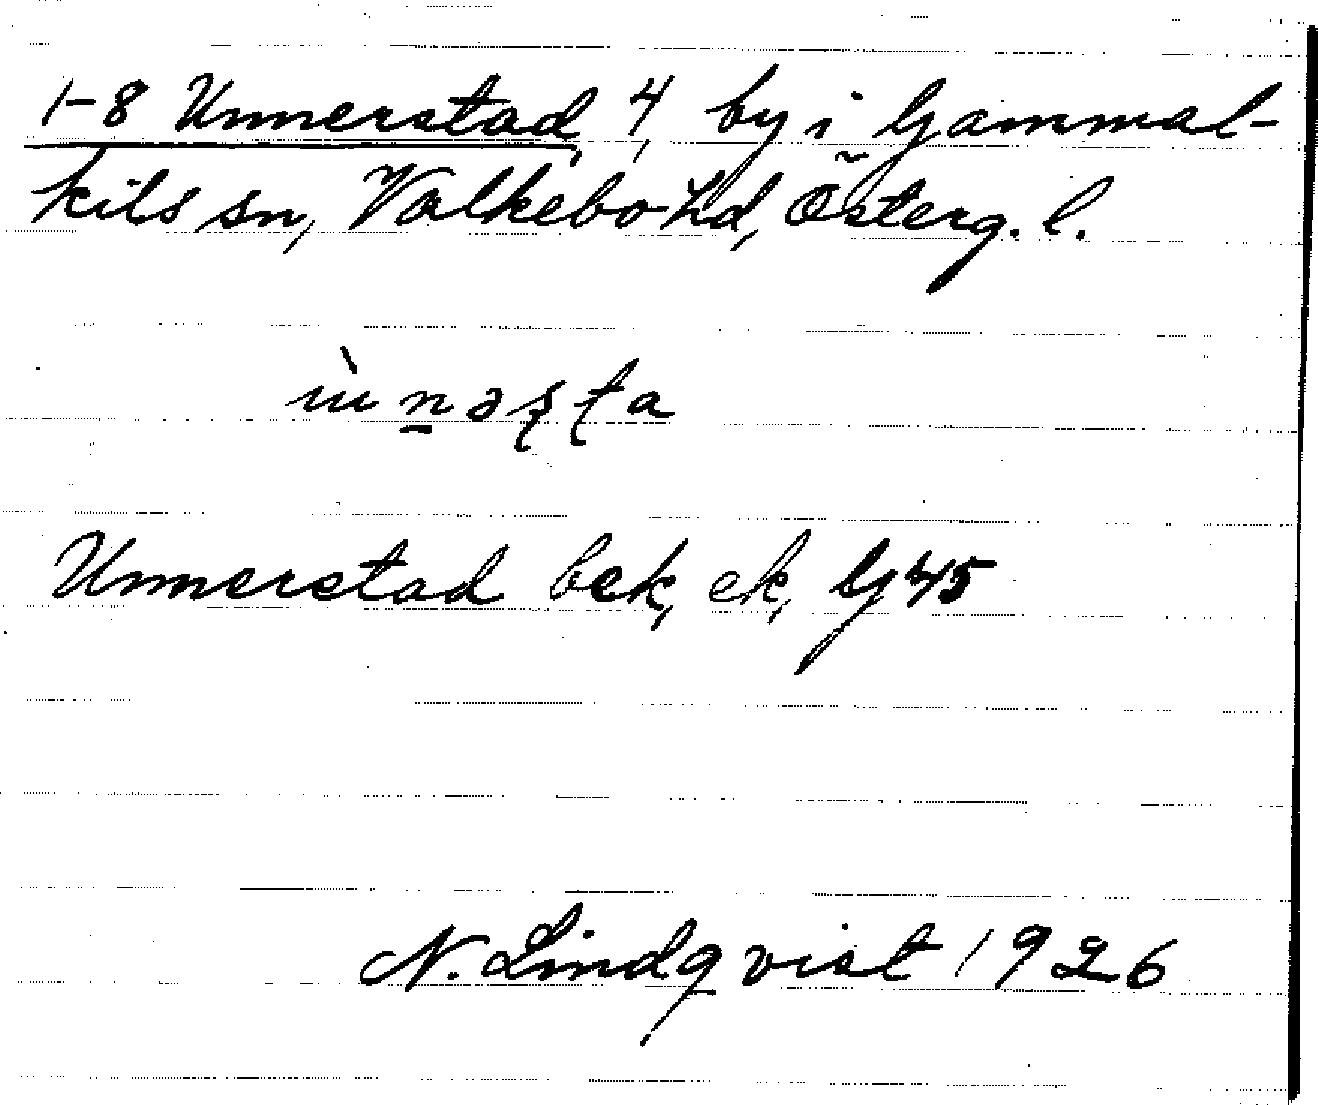 1-8 Unnerstad, 4, by i Gammal-
kils sn, Valkebo hd, Österg. l.
ùn̠əʂʈa
Unnerstad bek, ek, G 45
N. Lindqvist 1926